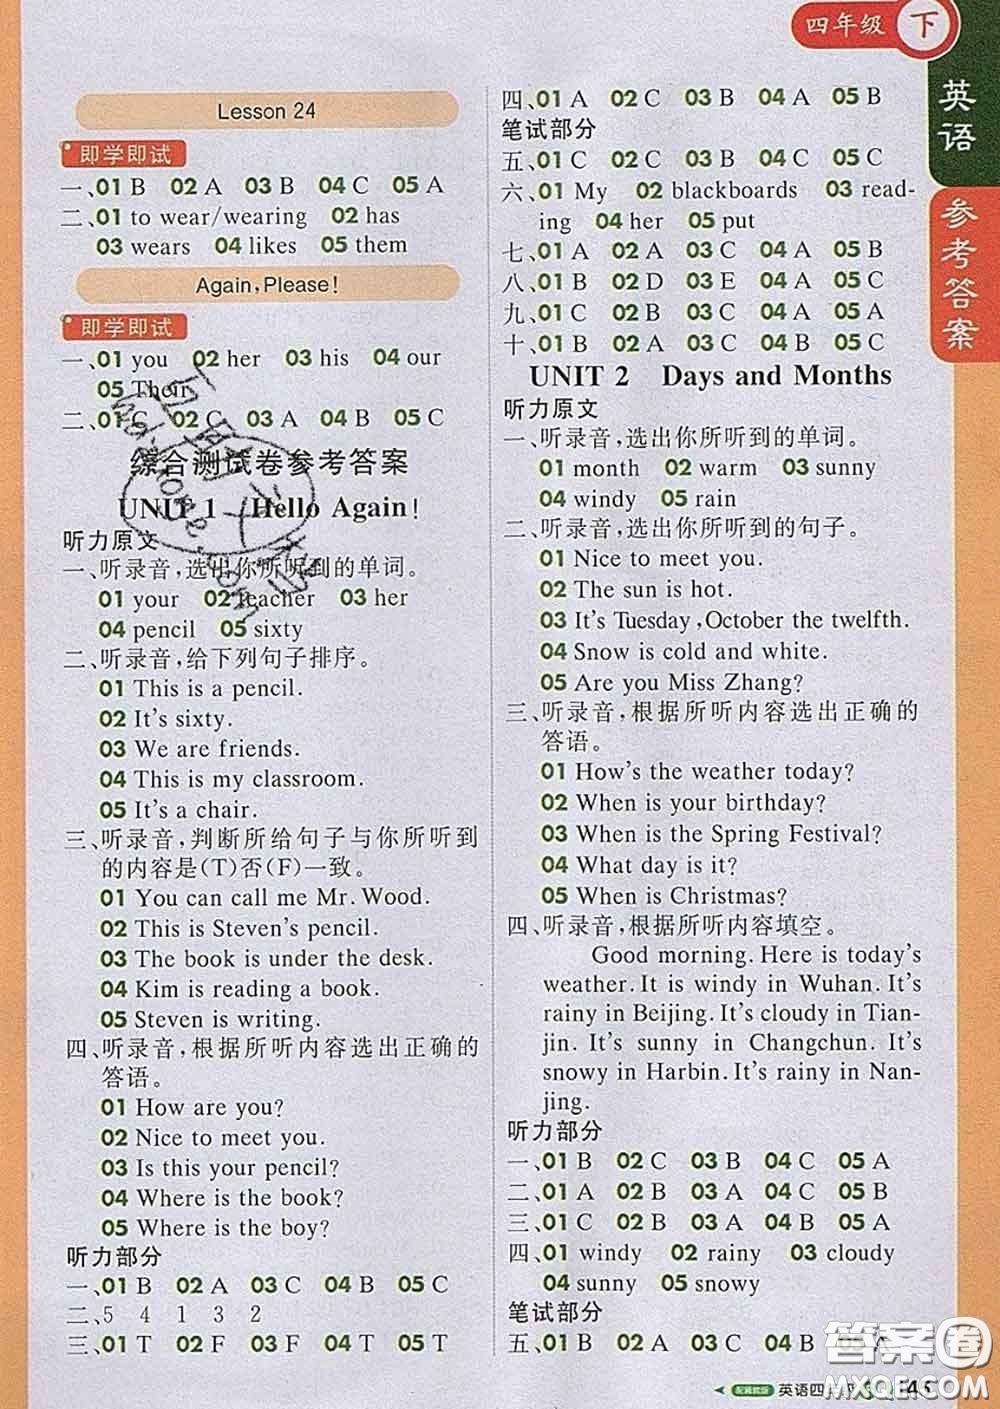 四年级 下
英语
参考答案
Lesson 24
即学即试
一、01 B 02 A 03 B 04 C 05 A
二、01 to wear/wearing 02 has
03 wears 04 likes 05 them
Again, Please!
即学即试
一、01 you 02 her 03 his 04 our
05 Their
二、01 C 02 C 03 A 04 B 05 C
综合测试卷参考答案
UNIT 1 Hello Again!
听力原文
一、听录音,选出你所听到的单词。
01 your 02 teacher 03 her
04 pencil 05 sixty
二、听录音,给下列句子排序。
01 This is a pencil.
02 It's sixty.
03 We are friends.
04 This is my classroom.
05 It's a chair.
三、听录音,判断所给句子与你所听到
的内容是(T)否(F)一致。
01 You can call me Mr. Wood.
02 This is Steven's pencil.
03 The book is under the desk.
04 Kim is reading a book.
05 Steven is writing.
四、听录音,根据所听内容选出正确的
答语。
01 How are you?
02 Nice to meet you.
03 Is this your pencil?
04 Where is the book?
05 Where is the boy?
听力部分
一、01 B 02 A 03 C 04 B 05 C
二、5 4 1 3 2
三、01 T 02 F 03 F 04 T 05 T
四、01 A 02 C 03 B 04 A 05 B
笔试部分
五、01 C 02 A 03 C 04 B 05 C
六、01 My 02 blackboards 03 read-
ing 04 her 05 put
七、01 A 02 A 03 C 04 A 05 B
八、01 B 02 D 03 E 04 C 05 A
九、01 C 02 B 03 C 04 A 05 A
十、01 B 02 A 03 B 04 A 05 C
UNIT 2 Days and Months
听力原文
一、听录音,选出你所听到的单词。
01 month 02 warm 03 sunny
04 windy 05 rain
二、听录音,选出你所听到的句子。
01 Nice to meet you.
02 The sun is hot.
03 It's Tuesday, October the twelfth.
04 Snow is cold and white.
05 Are you Miss Zhang?
三、听录音,根据所听内容选出正确的
答语。
01 How's the weather today?
02 When is your birthday?
03 When is the Spring Festival?
04 What day is it?
05 When is Christmas?
四、听录音,根据所听内容填空。
Good morning. Here is today's
weather. It is windy in Wuhan. It's
rainy in Beijing. It's cloudy in Tian-
jin. It's sunny in Changchun. It's
snowy in Harbin. It's rainy in Nan-
jing.
听力部分
一、01 B 02 C 03 B 04 C 05 A
二、01 A 02 B 03 A 04 C 05 B
三、01 C 02 B 03 A 04 B 05 A
四、01 windy 02 rainy 03 cloudy
04 sunny 05 snowy
笔试部分
五、01 B 02 A 03 C 04 B 05 A
配冀教版 英语四年级
答案圈
MXQE.COM